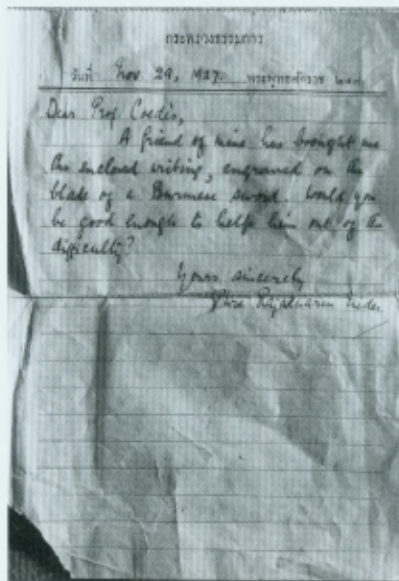 กระทรวงธรรมการ
วันที่ Nov. 29, 1927. พระพุทธศักราช ๒๔๗
Dear Prof. Coedès,
A friend of mine has brought me
the enclosed writing, engraved on the
blade of a Burmese sword. Would you
be good enough to help him out of the
difficulty?
Yours sincerely